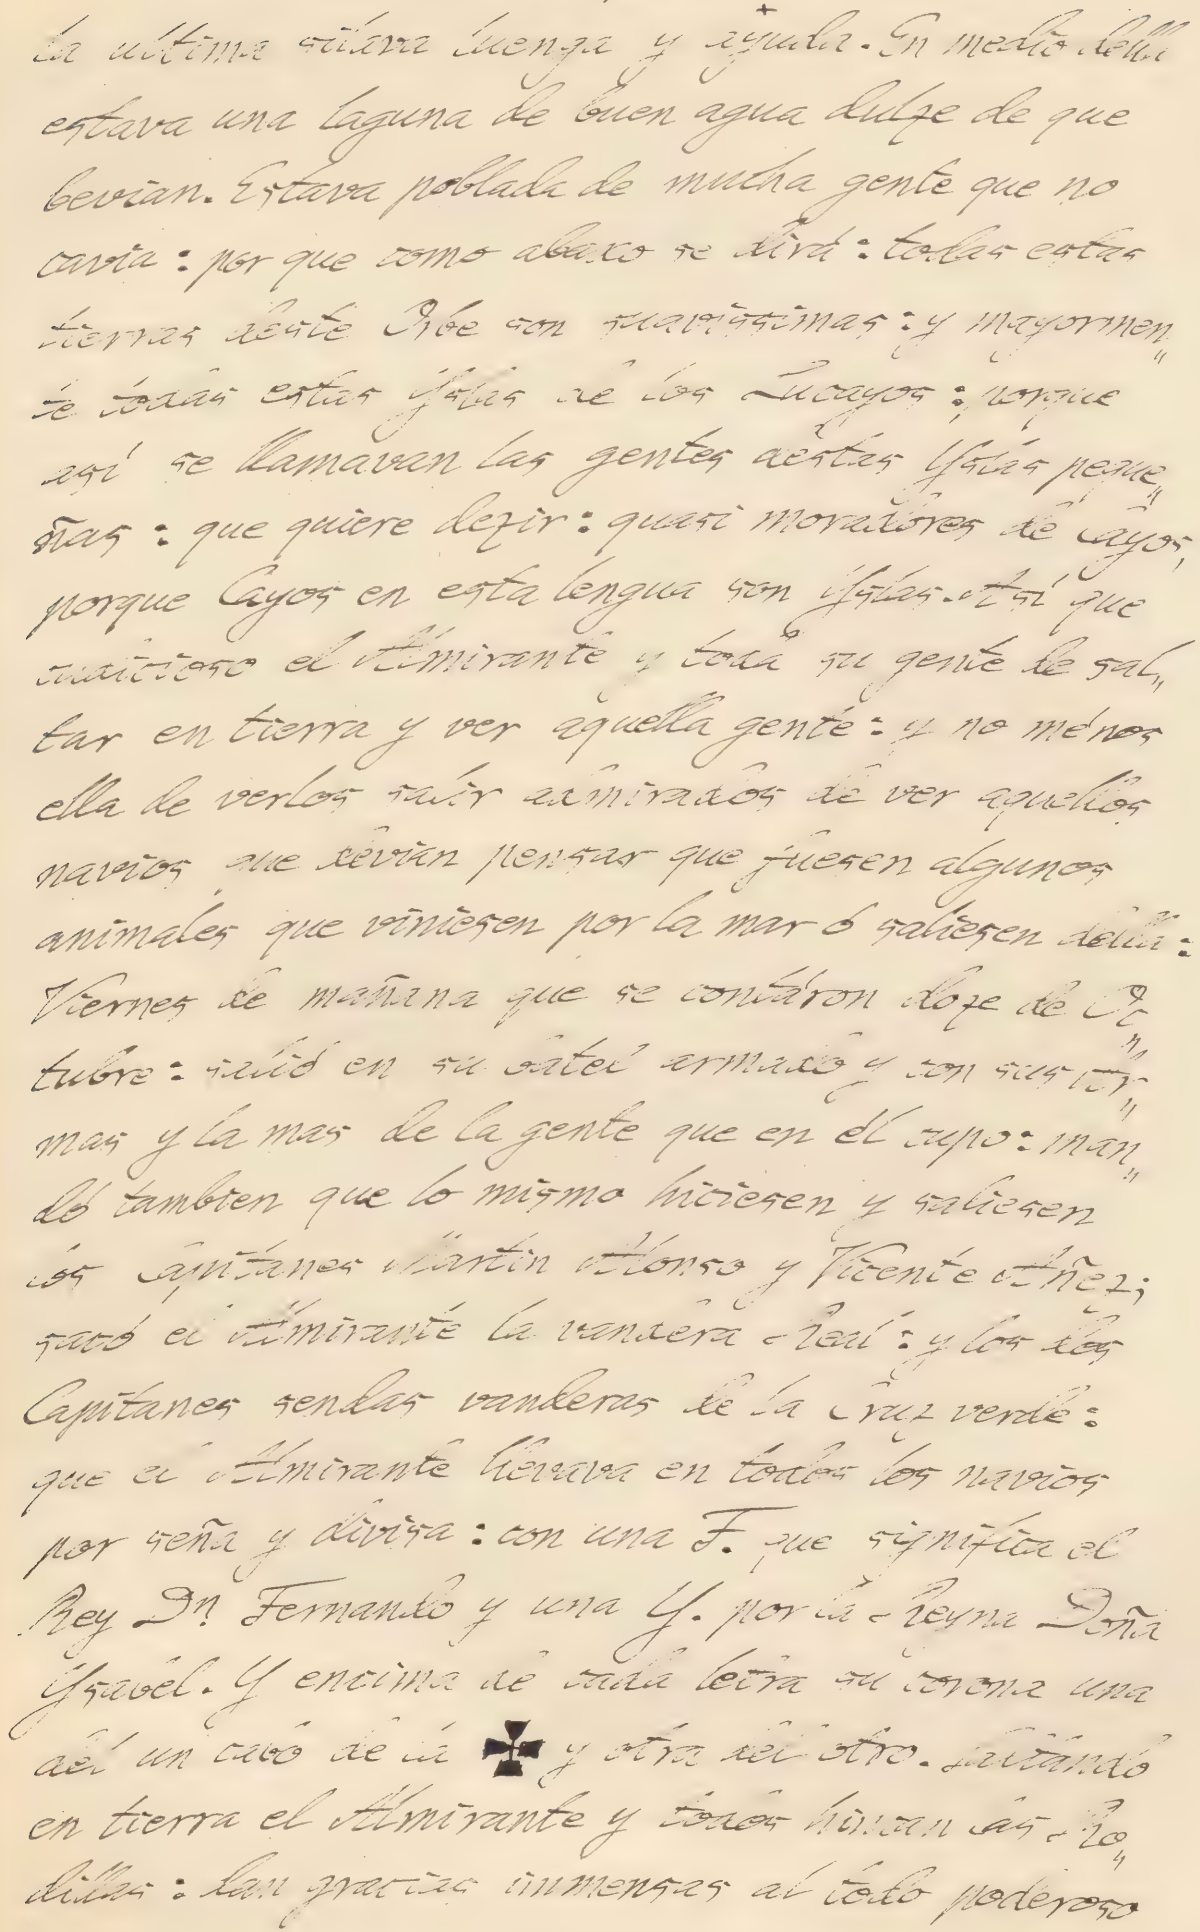 la ultima estava luenga y ayuda. En medio della
estava una laguna de buen agua dulze de que
bevian. Estava poblada de mucha gente que no
cavia: por que como abaxo se dirá: todas estas
tierras deste Orbe son suavissimas: y mayormen„
te todas estas Yslas de los Lucayos: porque
así se llamavan las gentes destas Yslas peque„
ñas: que quiere dezir: quasi moradores de Cayos,
porque Cayos en esta lengua son Yslas. Así que
cudicioso el Almirante y toda su gente de sal„
tar en tierra y ver aquella gente: y no ménos
ella de verlos salir admirados de ver aquellos
navios que devian pensar que fuesen algunos
animales que viniesen por la mar ó saliesen della:
Viernes de mañana que se contáron doze de Oc„
tubre: salió en su batel armado y con sus ar„
mas y la mas de la gente que en él cupo: man„
dó tambien que lo mismo hiciesen y saliesen
los Capitanes Martin Alonso y Vicente Añez;
sacó el Almirante la vandera Real: y los dos
Capitanes sendas vanderas de la Cruz verde:
que el Almirante llevava en todos los navios
por seña y divisa: con una F. que significa el
Rey Dn. Fernando y una Y. por la Reyna Doña
Ysavel. Y encima de cada letra su corona una
del un cavo de la ✠ y otra del otro. Saltando
en tierra el Almirante y todos hincan las Ro„
dillas: dan gracias immensas al todo poderoso